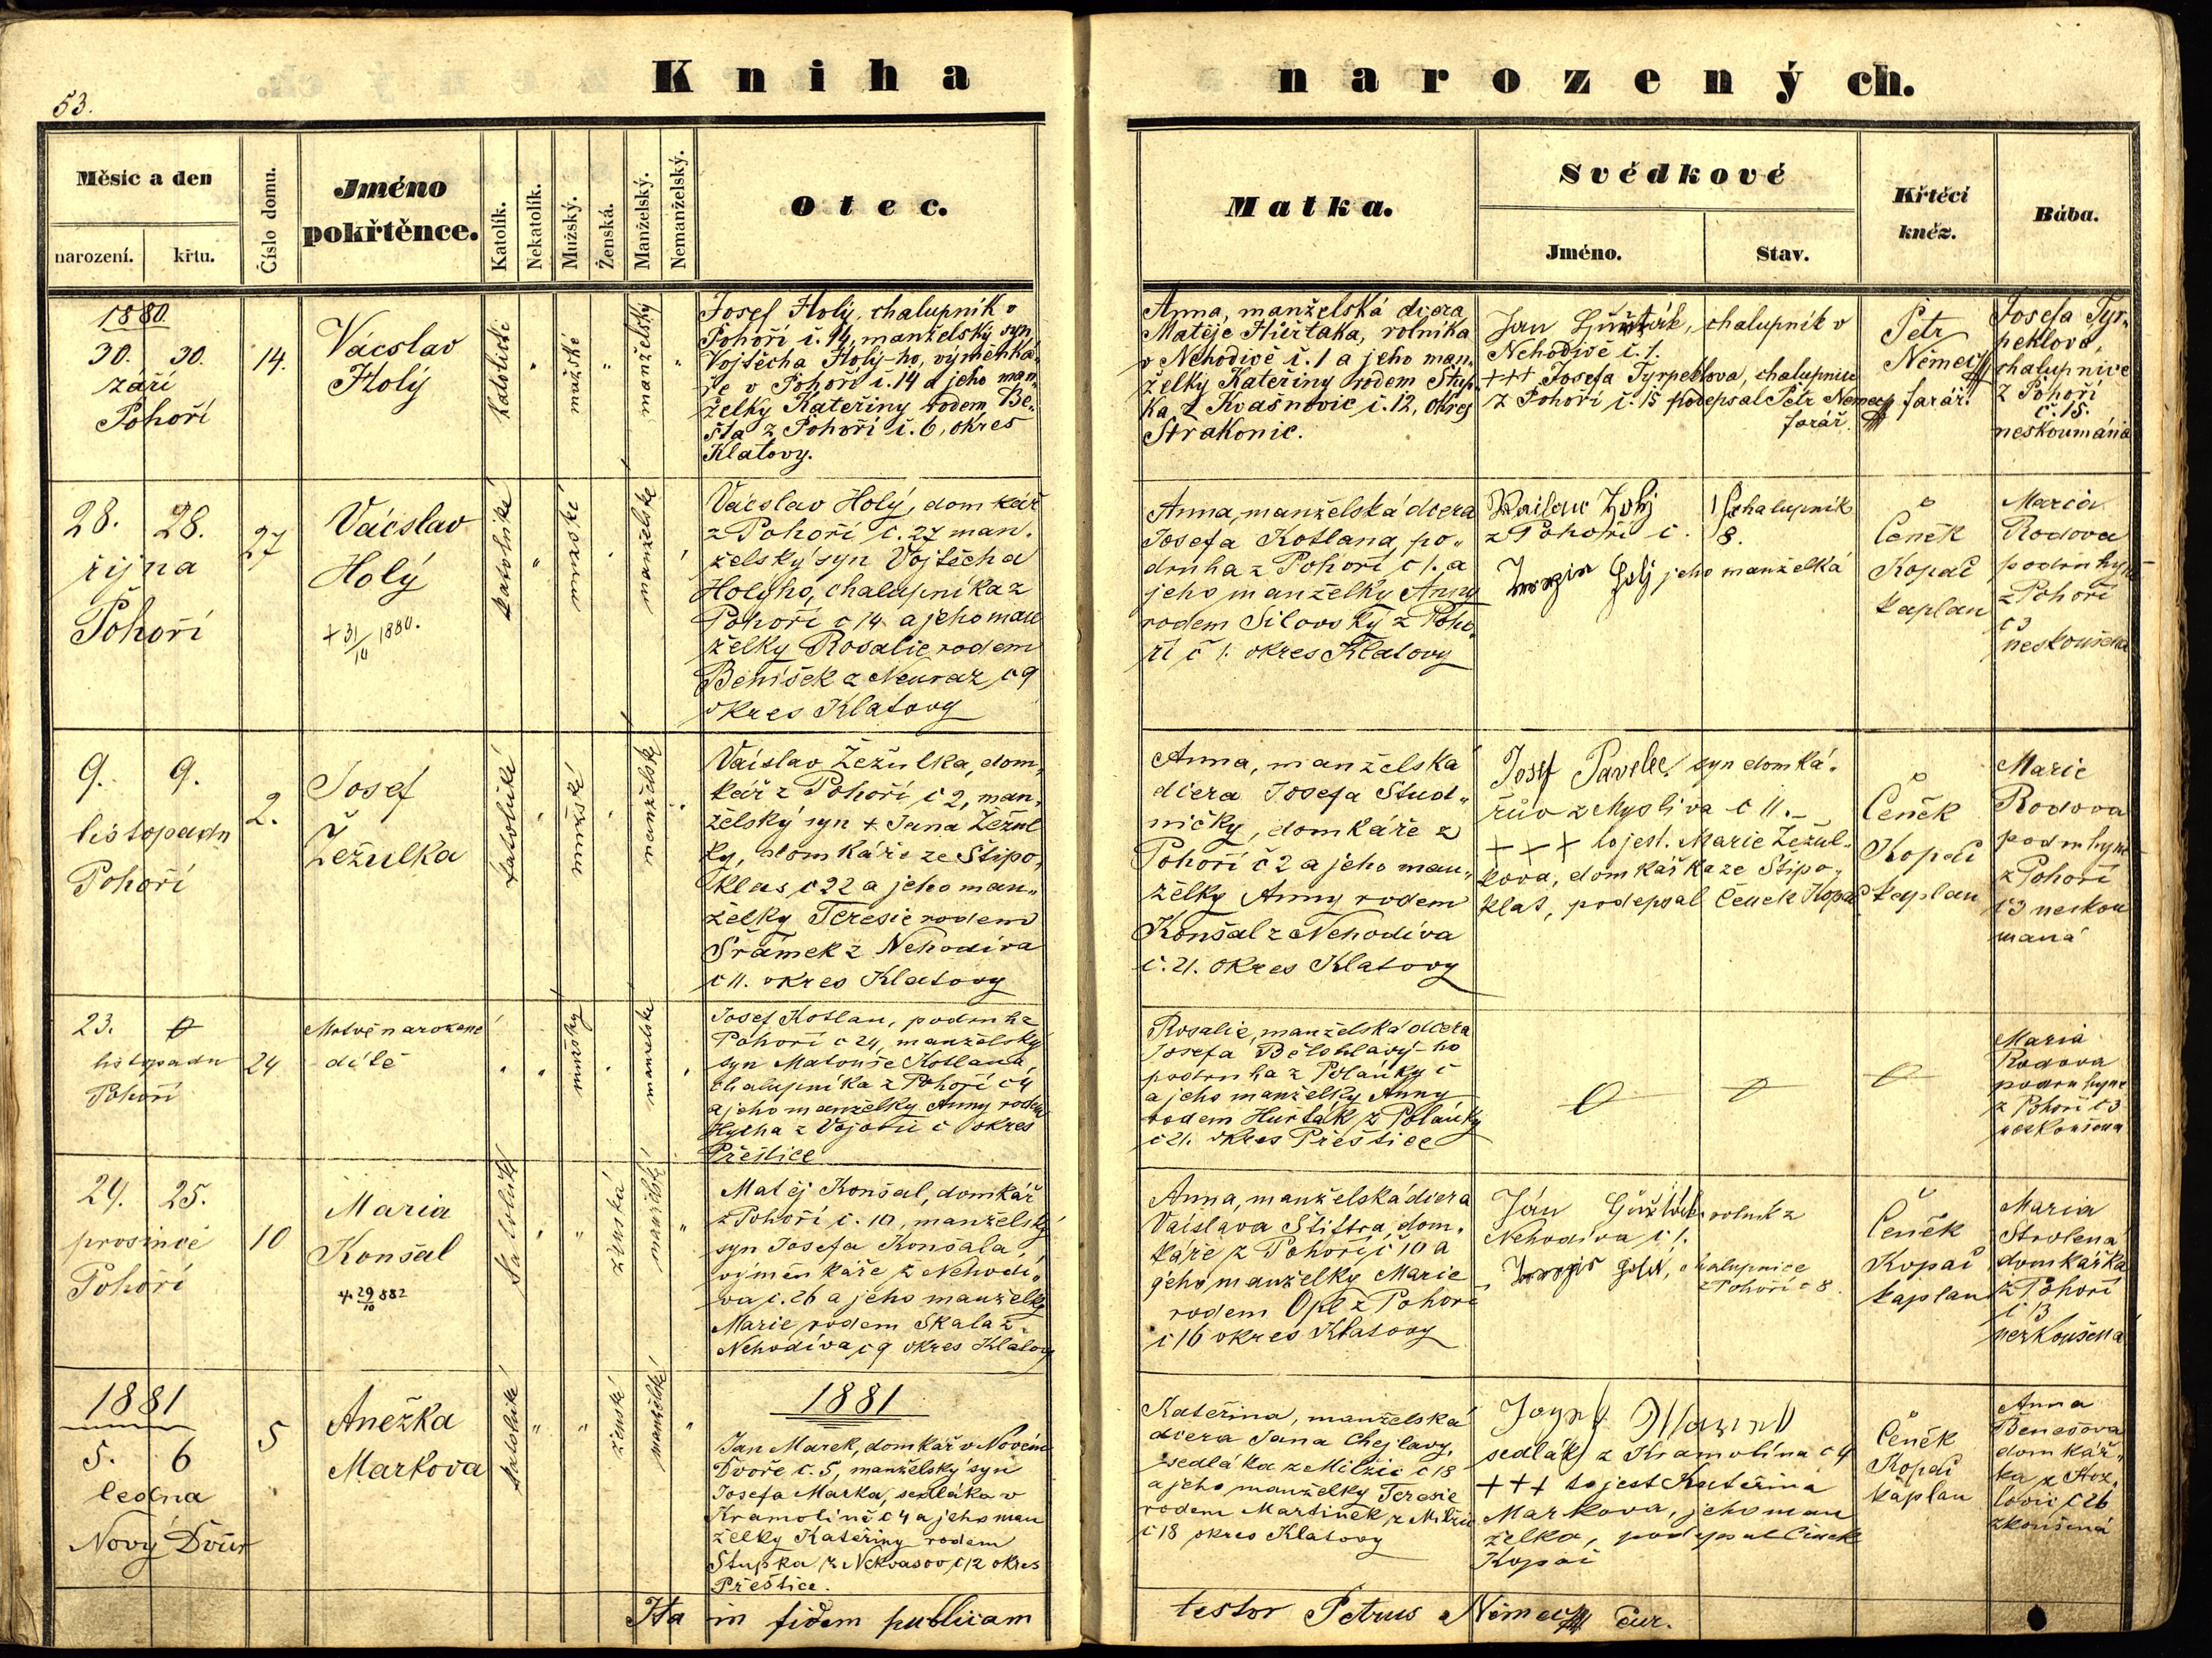 53.
Kniha narozených.
Měsíc a den
narození.
křtu.
Číslo domu.
Jméno
pokřtěnce.
Katolík.
Nekatolík.
Mužský.
Ženská.
Manželský.
Nemanželský.
Otec.
Matka.
Svědkové
Jméno.
Stav.
Křtěcí
kněz.
Bába.
1880
30. 30.
září
Pohoří
14.
Vácslav
Holý
katolické
mužské
manželský
Josef Holý, chalupník v
Pohoří č. 14, manželský syn
Vojtěcha Holý-ho, výměnká-
ře v Pohoří č. 14 a jeho man-
želky Kateřiny rodem Be-
šta z Pohoří č. 6, okres
Klatovy.
Anna, manželská dcera
Matěje Hürtaka, rolníka
v Nehodivě č. 1 a jeho man-
želky Kateřiny rodem Stup-
ka z Kvašňovic č. 12, okres
Strakonic.
Jan chalupník v
Nehodivě č. 1.
+++ Josefa Tyrpeklova, chalupnice
z Pohoří č. 15 podepsal Petr Němec
farář.
Petr
Němec
farář.
Josefa Tyr-
peklova,
chalupnice
z Pohoří
č. 15.
neskoumána
28. 28.
října
Pohoří
27
Vácslav
Holý
+ 31/10 1880.
katolické
mužské
manželské
Vácslav Holý, domkář
z Pohoří č. 27 man-
želský syn Vojtěcha
Holýho, chalupníka z
Pohoří č 14 a jeho man
želky Rosalie rodem
Beníšek z Neuraz č 9
okres Klatovy
Anna, manželská dcera
Josefa Kotlana, po-
druha z Pohoří č 1. a
jeho manželky Anny
rodem Silovský z Poho-
ří č 1. okres Klatovy
Holý chalupník
z Pohoří č. 8.
jeho manželka
Čeněk
Kopač
kaplan
Maria
Rodova
podruhyně
z Pohoří
č 3
neskoušena
9. 9.
listopadu
Pohoří
2.
Josef
Žežulka
katolické
mužské
manželský
Václslav Žežulka, dom-
kář z Pohoří č 2, man-
želský syn + Jana Žežul
ky, domkáře ze Štipo-
klas č 22 a jeho man-
želky Teresie rodem
Šrámek z Nehodiva
č 11. okres Klatovy
Anna, manželská
dcera Josefa Stud-
ničky, domkáře z
Pohoří č 2 a jeho man-
želky Anny rodem
Konšal z Nehodiva
č. 21. okres Klatovy
Josef Pavelec, syn domká-
řův z Mysliva č 11.
+++ to jest. Marie Žežul-
kova, domkářka ze Štipo-
klas, podepsal Čeněk Kopač
Čeněk
Kopač
kaplan
Marie
Rodova
podruhyně
z Pohoří
č 3 neskou
maná
23. 0
listopadu
Pohoří
24
Mrtvě narozené
dítě
mužský
manželské
Josef Kotlan, podruh z
Pohoří č 24, manželský
syn Matouše Kotlana,
chalupníka z Pohoří č 4
a jeho manželky Anny rodem
Hycha z Vojovic č okres
Přeštice
Rosalie, manželská dcera
Josefa Bělohlavý-ho
podruha z Polánky č
a jeho manželky Anny
rodem Hurťák z Polánky
č 21. okres Přeštice
0 0 0
Maria
Rodova
podruhyně
z Pohoří č 3
neskoušena
24. 25.
prosince
Pohoří
10
Maria
Konšal
+ 29/10 882
katolické
ženská
manželské
Matěj Konšal, domkář
z Pohoří č. 10, manželský
syn Josefa Konšala,
výměnkáře z Nehodi-
va č. 26 a jeho manželky
Marie rodem Skala z
Nehodiva č 9 okres Klatovy
Anna, manželská dcera
Václslava Štiftra, dom-
káře z Pohoří č 10 a
jeho manželky Marie
rodem Opl z Pohoří
č 16 okres Klatovy
Ján rolník z
Nehodiva č 1.
chalupnice
z Pohoří č 8.
Čeněk
Kopač
kaplan
Maria
Strolena
domkářka
z Pohoří
č 13
nezkoušená
1881
5. 6
ledna
Nový Dvůr
5
Anežka
Markova
katolické
ženské
manželské
1881
Jan Marek, domkář v Novém
Dvoře č. 5, manželský syn
Josefa Marka, sedláka v
Kramolíně č 4 a jeho man
želky Kateřiny rodem
Stupka z Nekvasov č 12 okres
Přeštice.
Kateřina, manželská
dcera Jana Chejlavy,
sedláka z Milžic č 18
a jeho manželky Teresie
rodem Martínek z Milžic
č 18 okres Klatovy
sedlák z Kramolína č 4
+++ to jest Kateřina
Markova, jeho man
želka, podepsal Čeněk
Kopač
Čeněk
Kopač
kaplan
Anna
Benešova
domkář-
ka z Koz-
lovic č 26
zkoušená
Ita in fidem publicam testor Petrus Němec Cur.